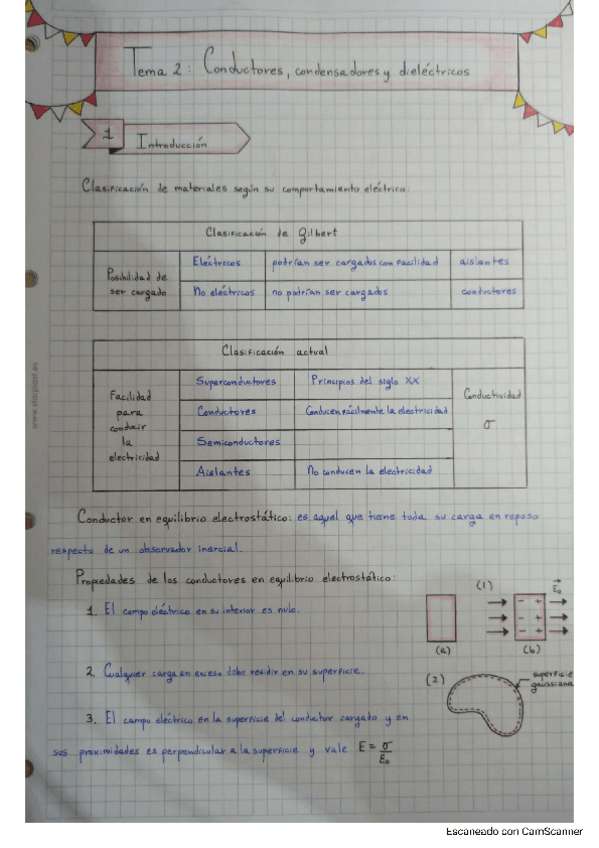 Tema 2: Conductores, condensadores y dieléctricos
1 Introducción
Clasificación de materiales según su comportamiento eléctrico:
Clasificación de Gilbert
Posibilidad de ser cargado
Eléctricos podrían ser cargados con facilidad aislantes
No eléctricos no podrían ser cargados conductores
Clasificación actual
Facilidad
para
conducir
la
electricidad
Superconductores Principios del siglo XX
Conductores Conducen fácilmente la electricidad
Semiconductores
Aislantes No conducen la electricidad
Conductividad
σ
www.starplast.es
Conductor en equilibrio electrostático: es aquel que tiene toda su carga en reposo
respecto de un observador inercial.
Propiedades de los conductores en equilibrio electrostático:
1. El campo eléctrico en su interior es nulo.
(1)
E₀
- +
- +
- +
(a) (b)
2. Cualquier carga en exceso debe residir en su superficie.
(2)
superficie
gaussiana
3. El campo eléctrico en la superficie del conductor cargado y en
sus proximidades es perpendicular a la superficie y vale E = σ/ε₀
Escaneado con CamScanner